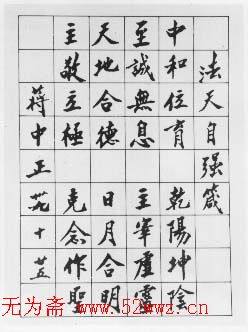 法天自强箴
中和位育乾陽坤陰
至誠無息主宰虛靈
天地合德日月合明
主敬立極克念作聖
蔣中正十廿五
无为斋 www.52wwz.cn